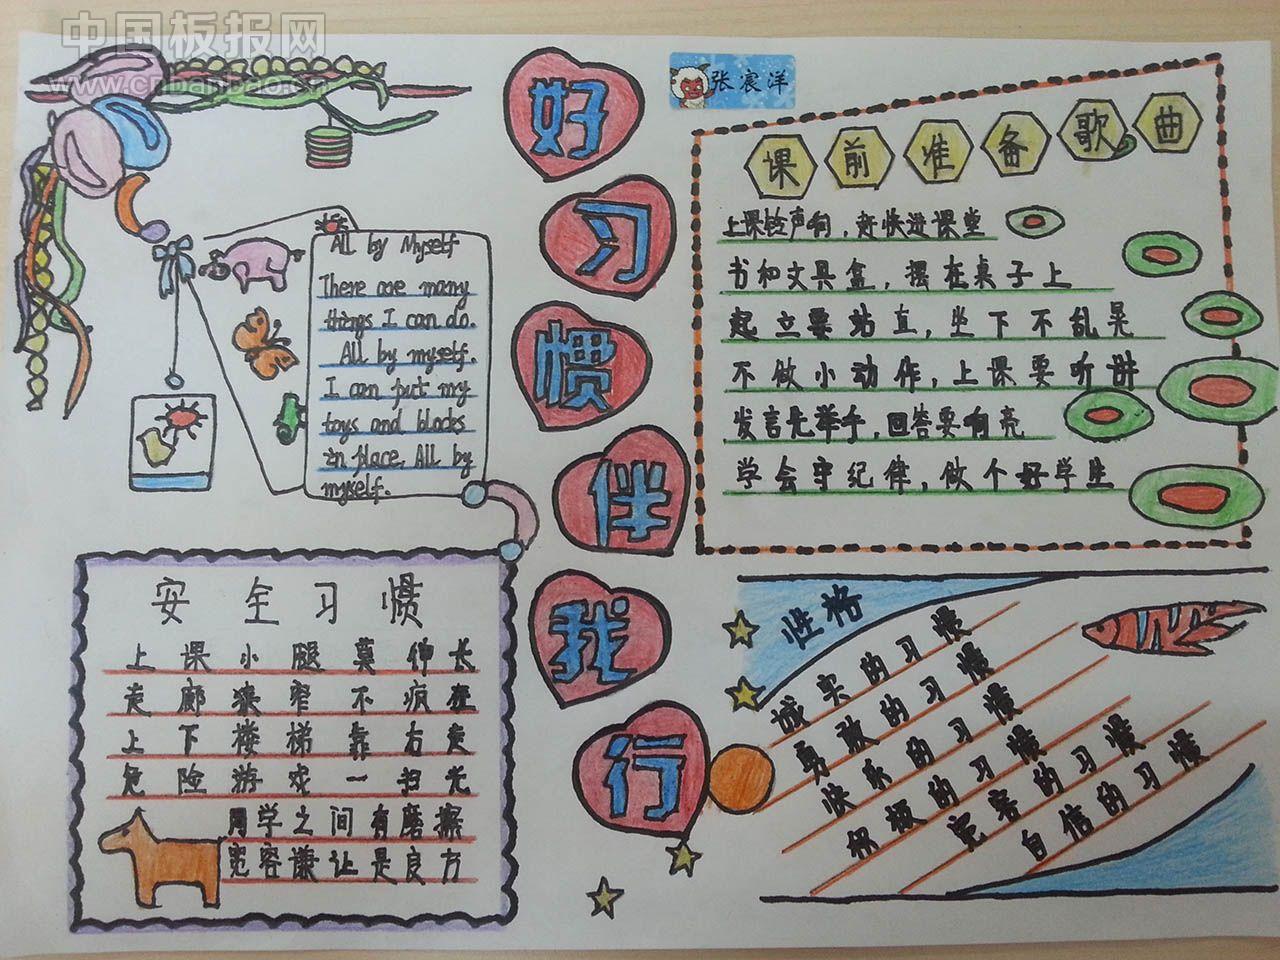 中国板报网
www.cnbanbao.cn
张宸洋
好习惯伴我行
All by Myself
There are many
things I can do.
All by myself.
I can put my
toys and blocks
in place, All by
myself.
课前准备歌曲
上课铃声响，赶快进课堂
书和文具盒，摆在桌子上
起立要站直，坐下不乱晃
不做小动作，上课要听讲
发言先举手，回答要响亮
学会守纪律，做个好学生
安全习惯
上课小腿莫伸长
走廊狭窄不疯狂
上下楼梯靠右走
危险游戏一扫光
同学之间有磨擦
宽容谦让是良方
性格
诚实的习惯
勇敢的习惯
快乐的习惯
积极的习惯
宽容的习惯
自信的习惯